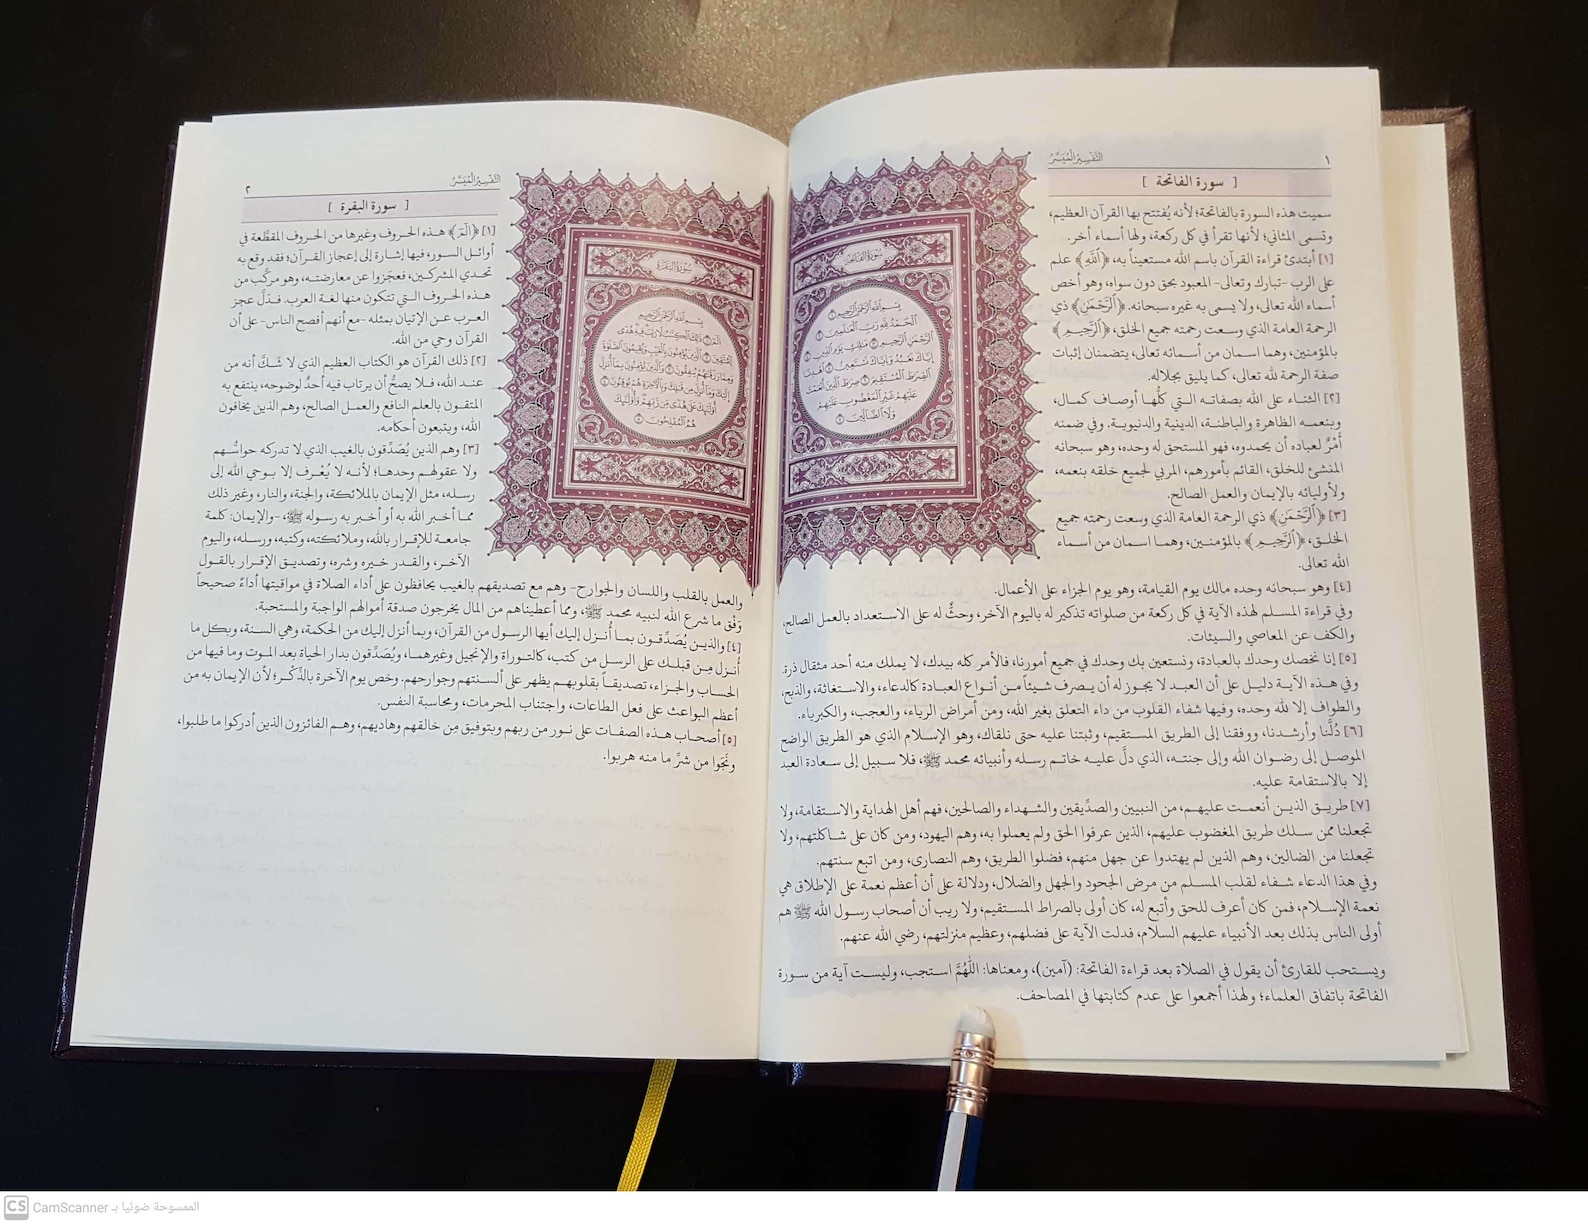 ١
التفسير الميسر
[ سورة الفاتحة ]
سُورَةُ الفَاتِحَةِ
بِسْمِ اللَّهِ الرَّحْمَٰنِ الرَّحِيمِ ١
الْحَمْدُ لِلَّهِ رَبِّ الْعَالَمِينَ ٢
الرَّحْمَٰنِ الرَّحِيمِ ٣ مَالِكِ يَوْمِ الدِّينِ ٤
إِيَّاكَ نَعْبُدُ وَإِيَّاكَ نَسْتَعِينُ ٥ اهْدِنَا
الصِّرَاطَ الْمُسْتَقِيمَ ٦ صِرَاطَ الَّذِينَ أَنْعَمْتَ
عَلَيْهِمْ غَيْرِ الْمَغْضُوبِ عَلَيْهِمْ
وَلَا الضَّالِّينَ ٧
سميت هذه السورة بالفاتحة؛ لأنه يُفتتح بها القرآن العظيم،
وتسمى المثاني؛ لأنها تقرأ في كل ركعة، ولها أسماء أخر.
[١] أبتدئ قراءة القرآن باسم الله مستعيناً به، ﴿اللَّهِ﴾ علم
على الرب -تبارك وتعالى- المعبود بحق دون سواه، وهو أخص
أسماء الله تعالى، ولا يسمى به غيره سبحانه. ﴿الرَّحْمَٰنِ﴾ ذي
الرحمة العامة الذي وسعت رحمته جميع الخلق، ﴿الرَّحِيمِ﴾
بالمؤمنين، وهما اسمان من أسمائه تعالى، يتضمنان إثبات
صفة الرحمة لله تعالى، كما يليق بجلاله.
[٢] الثناء على الله بصفاته التي كلُّها أوصاف كمال،
وبنعمه الظاهرة والباطنة، الدينية والدنيوية. وفي ضمنه
أَمْرٌ لعباده أن يحمدوه، فهو المستحق له وحده، وهو سبحانه
المنشئ للخلق، القائم بأمورهم، المربي لجميع خلقه بنعمه،
ولأوليائه بالإيمان والعمل الصالح.
[٣] ﴿الرَّحْمَٰنِ﴾ ذي الرحمة العامة الذي وسعت رحمته جميع
الخلق، ﴿الرَّحِيمِ﴾ بالمؤمنين، وهما اسمان من أسماء
الله تعالى.
[٤] وهو سبحانه وحده مالك يوم القيامة، وهو يوم الجزاء على الأعمال.
وفي قراءة المسلم لهذه الآية في كل ركعة من صلواته تذكير له باليوم الآخر، وحثٌّ له على الاستعداد بالعمل الصالح،
والكف عن المعاصي والسيئات.
[٥] إنا نخصك وحدك بالعبادة، ونستعين بك وحدك في جميع أمورنا، فالأمر كله بيدك، لا يملك منه أحد مثقال ذرة.
وفي هذه الآية دليل على أن العبد لا يجوز له أن يصرف شيئاً من أنواع العبادة كالدعاء، والاستغاثة، والذبح،
والطواف إلا لله وحده، وفيها شفاء القلوب من داء التعلق بغير الله، ومن أمراض الرياء، والعجب، والكبرياء.
[٦] دُلَّنا وأرشدنا، ووفقنا إلى الطريق المستقيم، وثبتنا عليه حتى نلقاك، وهو الإسلام الذي هو الطريق الواضح
الموصل إلى رضوان الله وإلى جنته، الذي دلَّ عليه خاتم رسله وأنبيائه محمد ﷺ، فلا سبيل إلى سعادة العبد
إلا بالاستقامة عليه.
[٧] طريق الذين أنعمت عليهم، من النبيين والصدِّيقين والشهداء والصالحين، فهم أهل الهداية والاستقامة، ولا
تجعلنا ممن سلك طريق المغضوب عليهم، الذين عرفوا الحق ولم يعملوا به، وهم اليهود، ومن كان على شاكلتهم، ولا
تجعلنا من الضالين، وهم الذين لم يهتدوا عن جهل منهم، فضلوا الطريق، وهم النصارى، ومن اتبع سنتهم.
وفي هذا الدعاء شفاء لقلب المسلم من مرض الجحود والجهل والضلال، ودلالة على أن أعظم نعمة على الإطلاق هي
نعمة الإسلام، فمن كان أعرف للحق وأتبع له، كان أولى بالصراط المستقيم، ولا ريب أن أصحاب رسول الله ﷺ هم
أولى الناس بذلك بعد الأنبياء عليهم السلام، فدلت الآية على فضلهم، وعظيم منزلتهم، رضي الله عنهم.
ويستحب للقارئ أن يقول في الصلاة بعد قراءة الفاتحة: (آمين)، ومعناها: اللَّهُمَّ استجب، وليست آية من سورة
الفاتحة باتفاق العلماء؛ ولهذا أجمعوا على عدم كتابتها في المصاحف.
التفسير الميسر
٢
[ سورة البقرة ]
سُورَةُ البَقَرَةِ
بِسْمِ اللَّهِ الرَّحْمَٰنِ الرَّحِيمِ
الٓمٓ ١ ذَٰلِكَ الْكِتَابُ لَا رَيْبَ فِيهِ هُدًى
لِّلْمُتَّقِينَ ٢ الَّذِينَ يُؤْمِنُونَ بِالْغَيْبِ وَيُقِيمُونَ الصَّلَاةَ
وَمِمَّا رَزَقْنَاهُمْ يُنفِقُونَ ٣ وَالَّذِينَ يُؤْمِنُونَ بِمَا أُنزِلَ
إِلَيْكَ وَمَا أُنزِلَ مِن قَبْلِكَ وَبِالْآخِرَةِ هُمْ يُوقِنُونَ ٤
أُولَٰئِكَ عَلَىٰ هُدًى مِّن رَّبِّهِمْ وَأُولَٰئِكَ
هُمُ الْمُفْلِحُونَ ٥
[١] ﴿الٓمٓ﴾ هذه الحروف وغيرها من الحروف المقطَّعة في
أوائل السور، فيها إشارة إلى إعجاز القرآن؛ فقد وقع به
تحدي المشركين، فعجَزوا عن معارضته، وهو مركَّب من
هذه الحروف التي تتكون منها لغة العرب. فدَلَّ عجز
العرب عن الإتيان بمثله -مع أنهم أفصح الناس- على أن
القرآن وحي من الله.
[٢] ذلك القرآن هو الكتاب العظيم الذي لا شَكَّ أنه من
عند الله، فلا يصحُّ أن يرتاب فيه أحدٌ لوضوحه، ينتفع به
المتقون بالعلم النافع والعمل الصالح، وهم الذين يخافون
الله، ويتبعون أحكامه.
[٣] وهم الذين يُصَدِّقون بالغيب الذي لا تدركه حواسُّهم
ولا عقولهم وحدها؛ لأنه لا يُعْرف إلا بوحي الله إلى
رسله، مثل الإيمان بالملائكة، والجنة، والنار، وغير ذلك
مما أخبر الله به أو أخبر به رسوله ﷺ، -والإيمان: كلمة
جامعة للإقرار بالله، وملائكته، وكتبه، ورسله، واليوم
الآخر، والقدر خيره وشره، وتصديق الإقرار بالقول
والعمل بالقلب واللسان والجوارح- وهم مع تصديقهم بالغيب يحافظون على أداء الصلاة في مواقيتها أداءً صحيحاً
وَفْق ما شرع الله لنبيه محمد ﷺ، ومما أعطيناهم من المال يخرجون صدقة أموالهم الواجبة والمستحبة.
[٤] والذين يُصَدِّقون بما أُنزل إليك أيها الرسول من القرآن، وبما أنزل إليك من الحكمة، وهي السنة، وبكل ما
أُنزل مِن قبلك على الرسل من كتب، كالتوراة والإنجيل وغيرهما، ويُصَدِّقون بدار الحياة بعد الموت وما فيها من
الحساب والجزاء، تصديقاً بقلوبهم يظهر على ألسنتهم وجوارحهم. وخص يوم الآخرة بالذِّكْر؛ لأن الإيمان به من
أعظم البواعث على فعل الطاعات، واجتناب المحرمات، ومحاسبة النفس.
[٥] أصحاب هذه الصفات على نور من ربهم وبتوفيق مِن خالقهم وهاديهم، وهم الفائزون الذين أدركوا ما طلبوا،
ونَجَوا من شرِّ ما منه هربوا.
CS CamScanner الممسوحة ضوئيا بـ